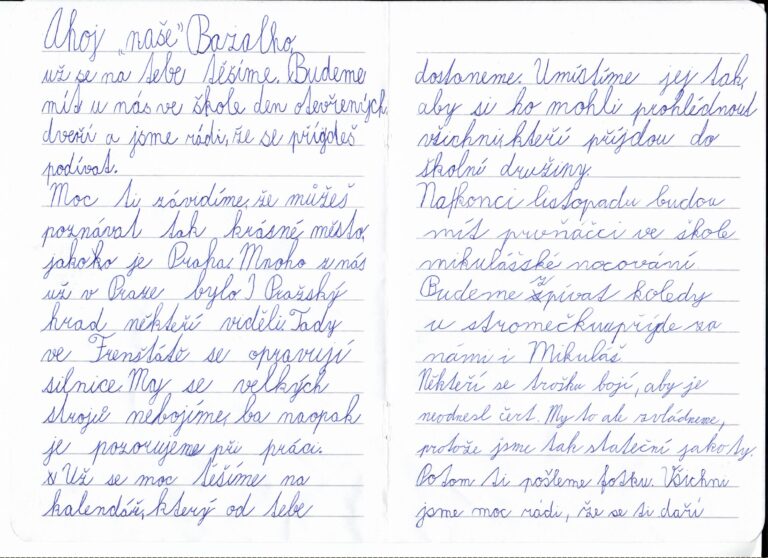 Ahoj „naše" Bazalko,
už se na tebe těšíme. Budeme
mít u nás ve škole den otevřených
dveří a jsme rádi, že se přijdeš
podívat.
Moc ti závidíme, že můžeš
poznávat tak krásné město,
jakoko je Praha. Mnoho z nás
už v Praze bylo I Pražský
hrad někteří viděli. Tady
ve Frenštátě se opravují
silnice. My se velkých
strojů nebojíme, ba naopak
je pozorujeme při práci.
Už se moc těšíme na
kalendář, který od tebe
dostaneme. Umístíme jej tak,
aby si ho mohli prohlédnout
všichni, kteří přijdou do
školní družiny.
Na konci listopadu budou
mít prvňáčci ve škole
mikulášské nocování
Budeme zpívat koledy
u stromečku a přijde za
námi i Mikuláš
Někteří se trošku bojí, aby je
neodnesl čert. My to ale zvládneme,
protože jsme tak stateční jako ty.
Potom ti pošleme fotku. Všichni
jsme moc rádi, že se ti daří